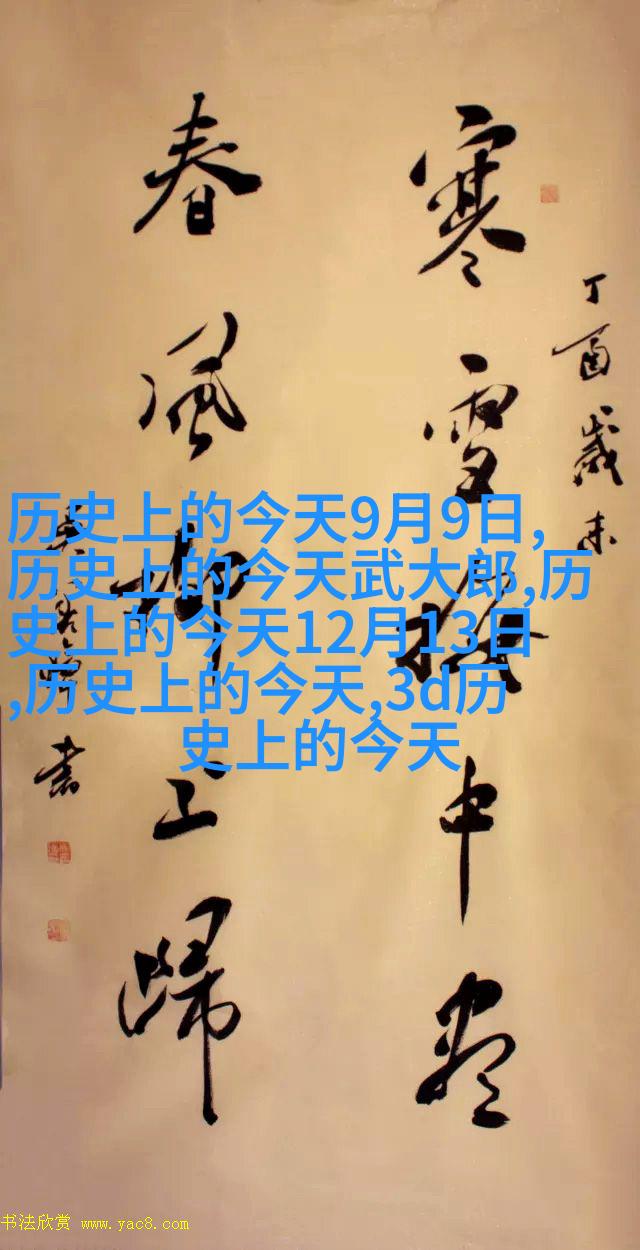 丁酉歲末
寒雪梅中盡
春風柳上歸
書
历史上的今天9月9日,
历史上的今天武大郎,历
史上的今天12月13日
,历史上的今天,3d历
史上的今天
书法欣赏 www.yac8.com